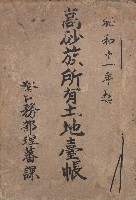 昭和十一年
高砂族所有土地臺帳
務部理蕃課